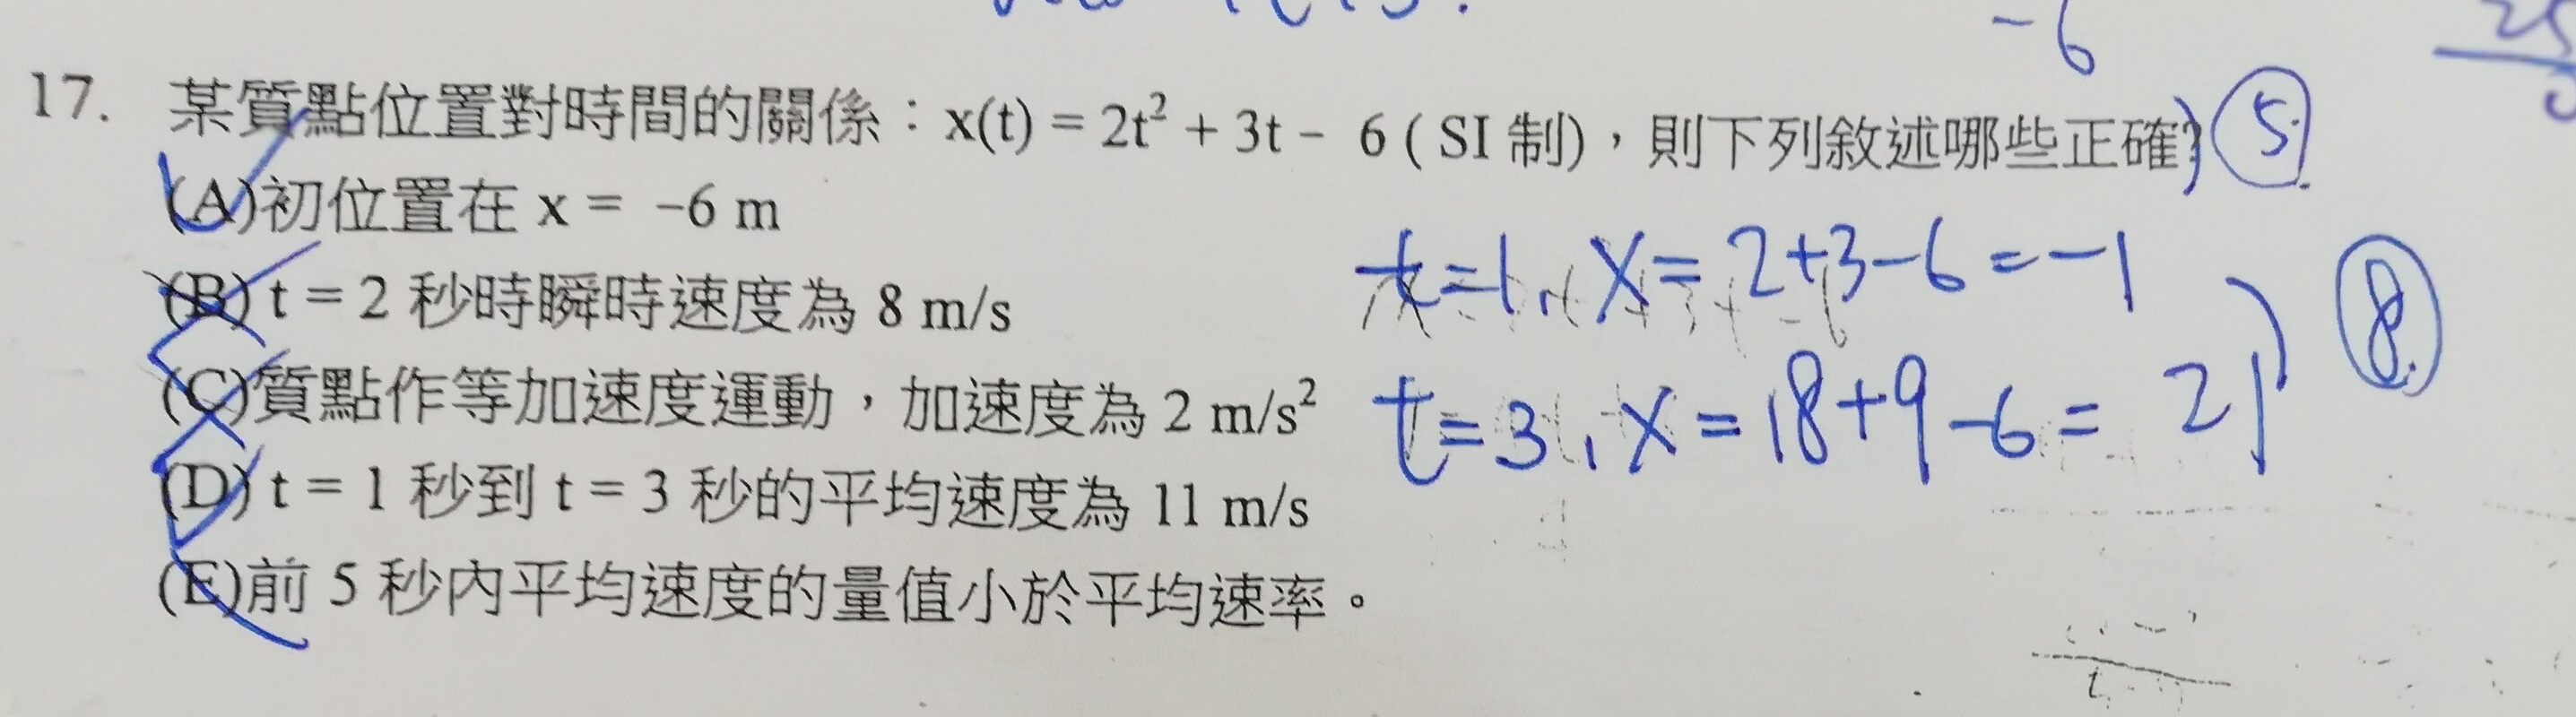 -6
17. 某質點位置對時間的關係：x(t) = 2t² + 3t - 6 ( SI 制)，則下列敘述哪些正確? 5
(A)初位置在 x = -6 m
t=1, x=2+3-6=-1
(B) t = 2 秒時瞬時速度為 8 m/s
8
(C)質點作等加速度運動，加速度為 2 m/s²
t=3, x=18+9-6=21
(D) t = 1 秒到 t = 3 秒的平均速度為 11 m/s
(E)前 5 秒內平均速度的量值小於平均速率。